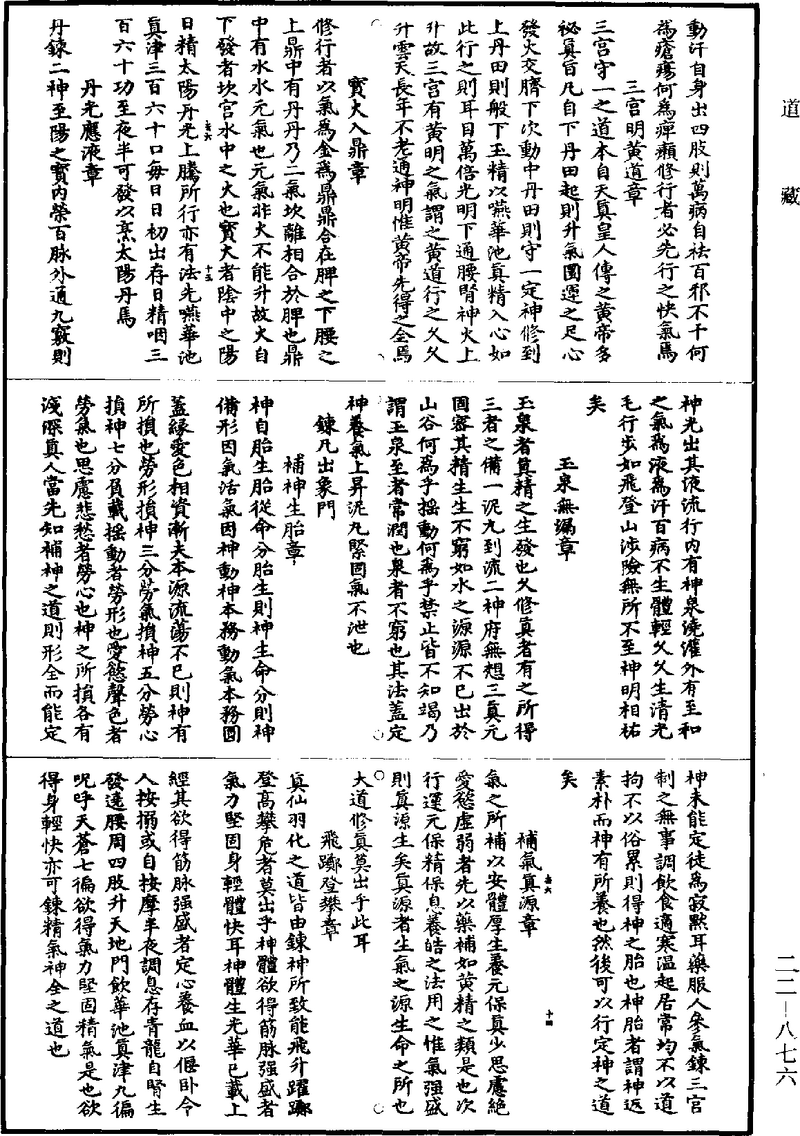 道藏
動汗自身出四肢則萬病自祛百邪不干何
為瘡瘍何為癉癩修行者必先行之快氣焉
三宫明黄道章
三宫守一之道本自天真皇人傳之黄帝多
祕真旨凡自下丹田起則升氣圓運之足心
發火交臍下次動中丹田則守一定神修到
上丹田則般下玉精以嚥華池真精入心如
此行之則耳目萬倍光明下通腰腎神火上
升故三宫有黄明之氣謂之黄道行之久久
升雲天長年不老通神明惟黄帝先得之全焉
寳火入鼎章
修行者以氣為金為鼎鼎合在脾之下腰之
上鼎中有丹丹乃二氣坎離相合於脾也鼎
中有水水元氣也元氣非火不能升故火自
下發者坎宫水中之火也寳火者陰中之陽
日精太陽丹光上騰所行亦有法先嚥華池
真津三百六十口每日日初出存日精咽三
百六十功至夜半可發以烹太陽丹焉
丹光應液章
丹鍊二神至陽之寳内榮百脉外通九竅則
神光出其液流行内有神泉澆灌外有至和
之氣為液為汗百病不生體輕久久生清光
毛行步如飛登山涉險無所不至神明相祐
矣
玉泉無漏章
玉泉者真精之生發也久修真者有之所得
三者之備一泥丸到流二神府無想三真元
固審其精生生不窮如水之源源不已出於
山谷何為乎摇動何為乎禁止皆不知竭乃
謂玉泉至者常潤也泉者不窮也其法蓋定
神養氣上昇泥丸堅固氣不泄也
鍊凡出象門
補神生胎章
神自胎生胎從命分胎生則神生命分則神
備形因氣活氣因神動神本務動氣本務圓
蓋緣愛色相資漸夫本源流蕩不已則神有
所損也勞形損神三分勞氣損神五分勞心
損神七分負載摇動者勞形也愛慾聲色者
勞氣也思慮悲愁者勞心也神之所損各有
淺深真人當先知補神之道則形全而能定
神未能定徒為寂默耳藥服人參氣鍊三宫
制之無事調飲食適寒温起居常均不以道
拘不以俗累則得神之胎也神胎者謂神返
素朴而神有所養也然後可以行定神之道
矣
補氣真源章
氣之所補以安體厚生養元保真少思慮絶
愛慾虚弱者先以藥補如黄精之類是也次
行運元保精保息養皓之法用之惟氣强盛
則真源生矣真源者生氣之源生命之所也
大道修真莫出乎此耳
飛躑登攀章
真仙羽化之道皆由鍊神所致能飛升躍躑
登高攀危者莫出乎神體欲得筋脉强盛者
氣力堅固身輕體快耳神體生光華已載上
經其欲得筋脉强盛者定心養血以偃卧令
人按搦或自按摩半夜調息存青龍自腎生
發遶腰周四肢升天地門飲華池真津九徧
呪呼天蒼七徧欲得氣力堅固精氣是也欲
得身輕快亦可鍊精氣神全之道也
二二—八七六